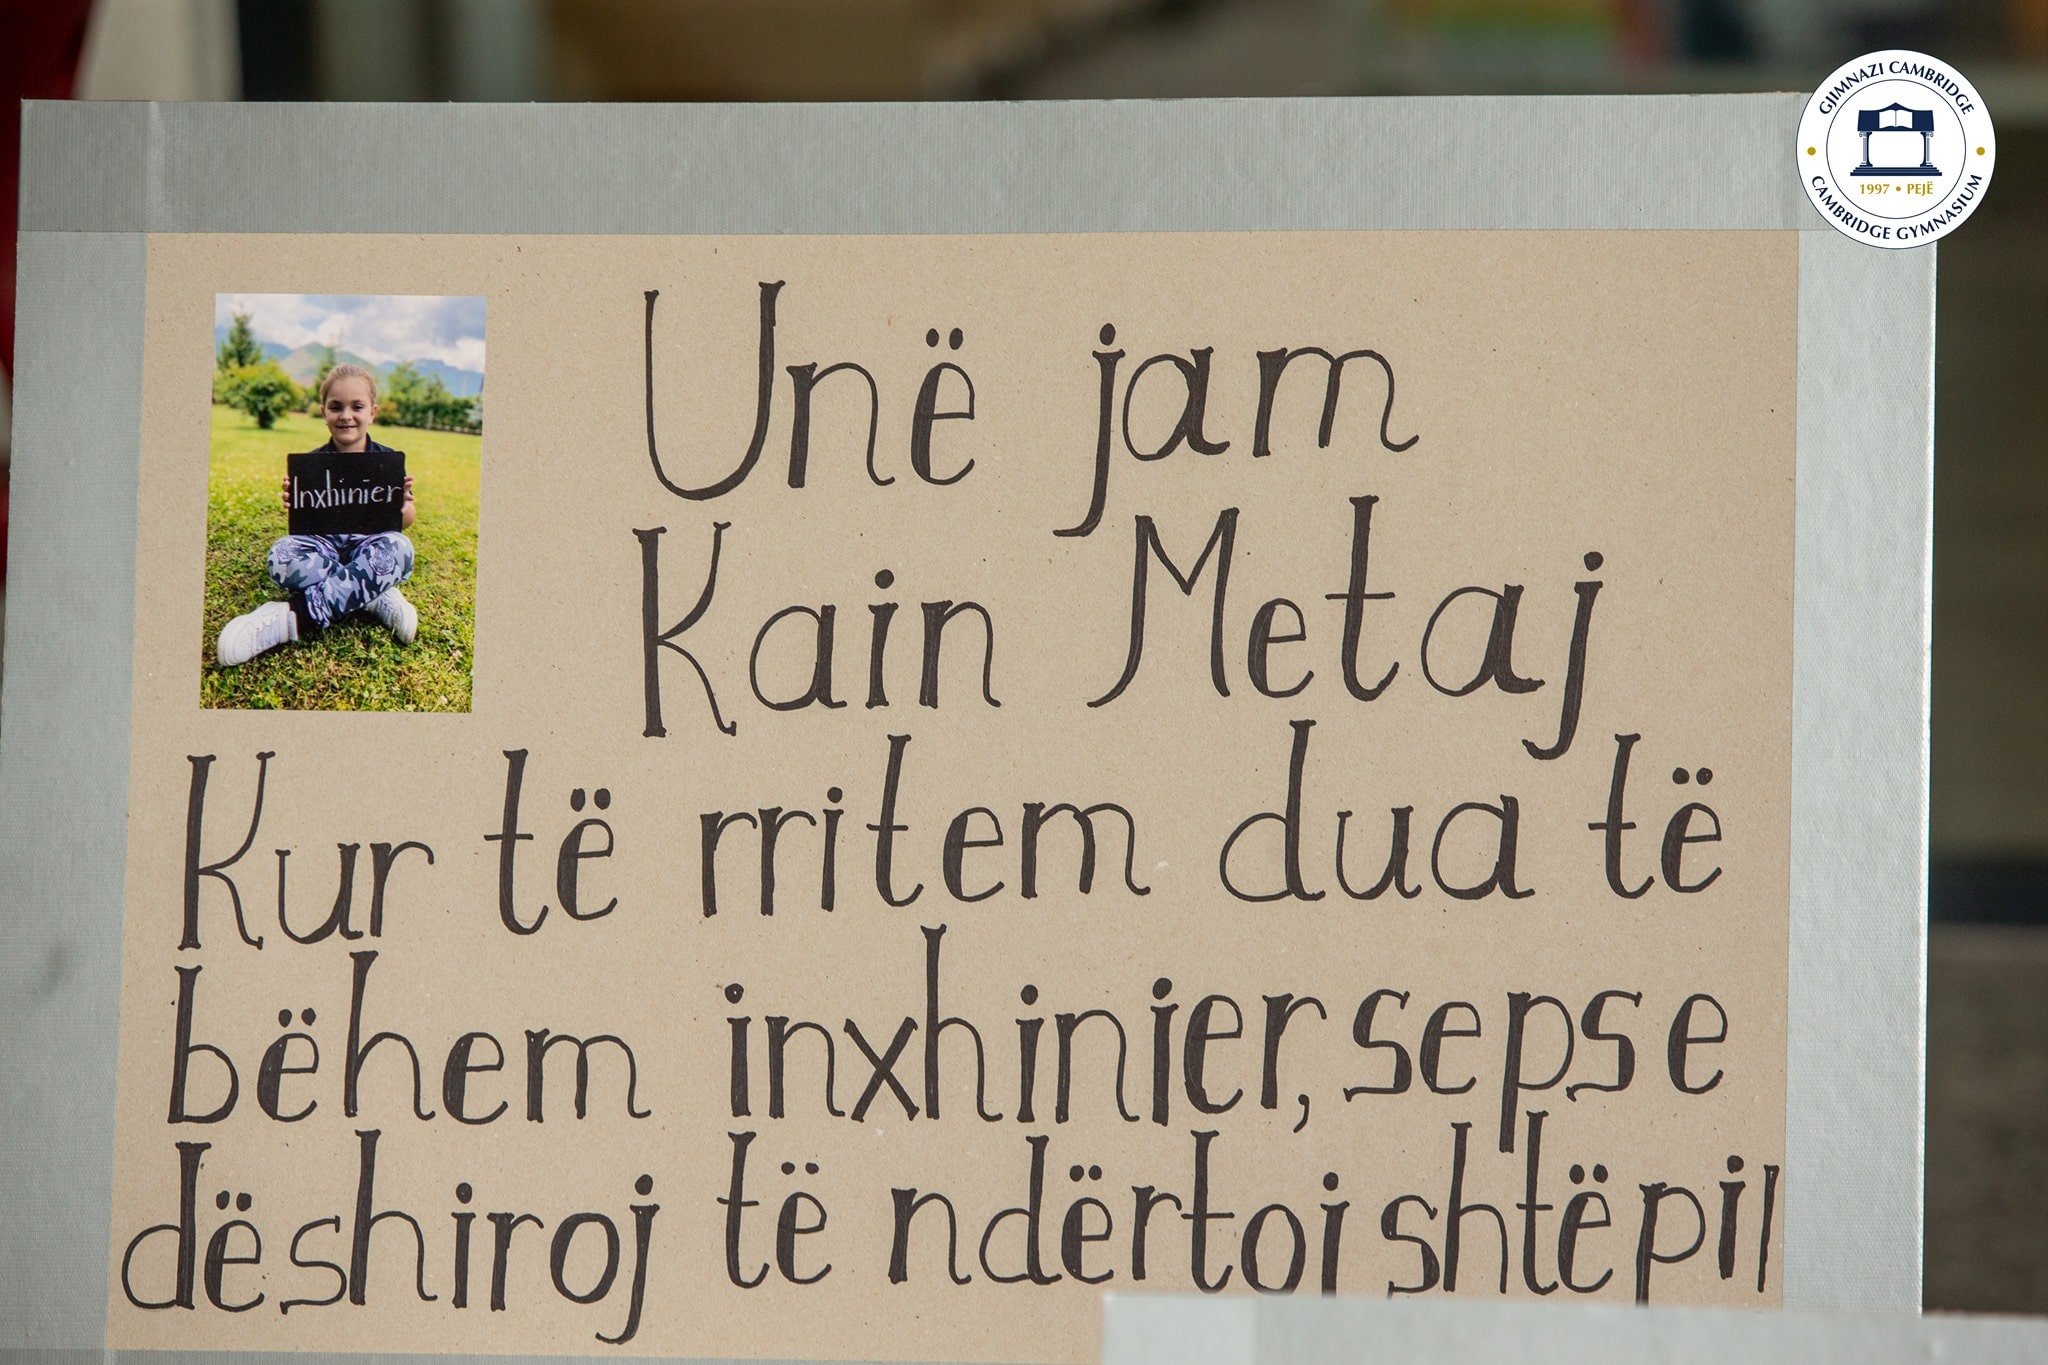 GJIMNAZI CAMBRIDGE
1997 • PEJË
CAMBRIDGE GYMNASIUM
Inxhinier
Unë jam
Kain Metaj
Kur të rritem dua të
bëhem inxhinier, sepse
dëshiroj të ndërtoj shtëpi